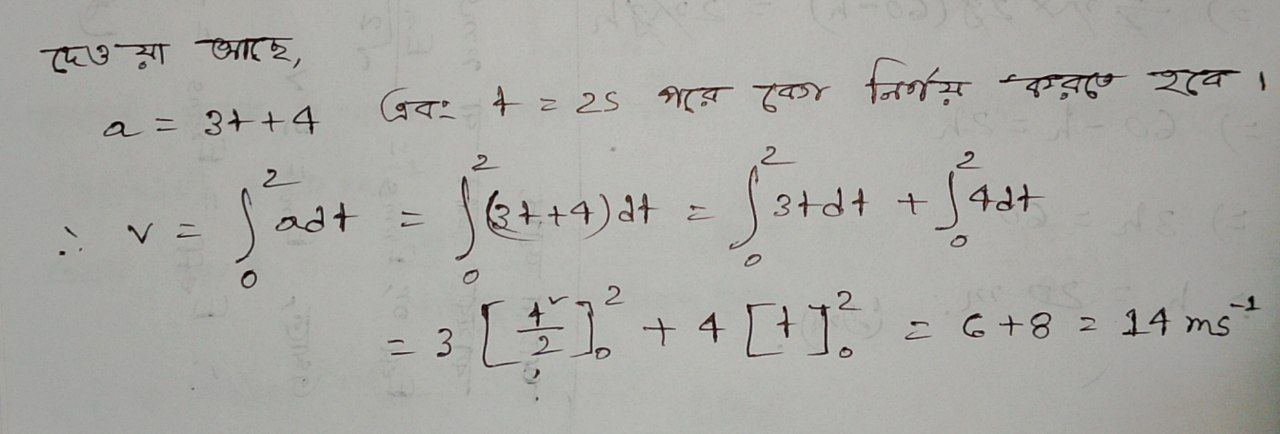 দেওয়া আছে,
a = 3t+4 এবং t = 2s পরে বেগ নির্ণয় করতে হবে।
∴ v = ∫₀² adt = ∫₀² (3t+4)dt = ∫₀² 3tdt + ∫₀² 4dt
= 3 [t²/2]₀² + 4 [t]₀² = 6+8 = 14 ms⁻¹